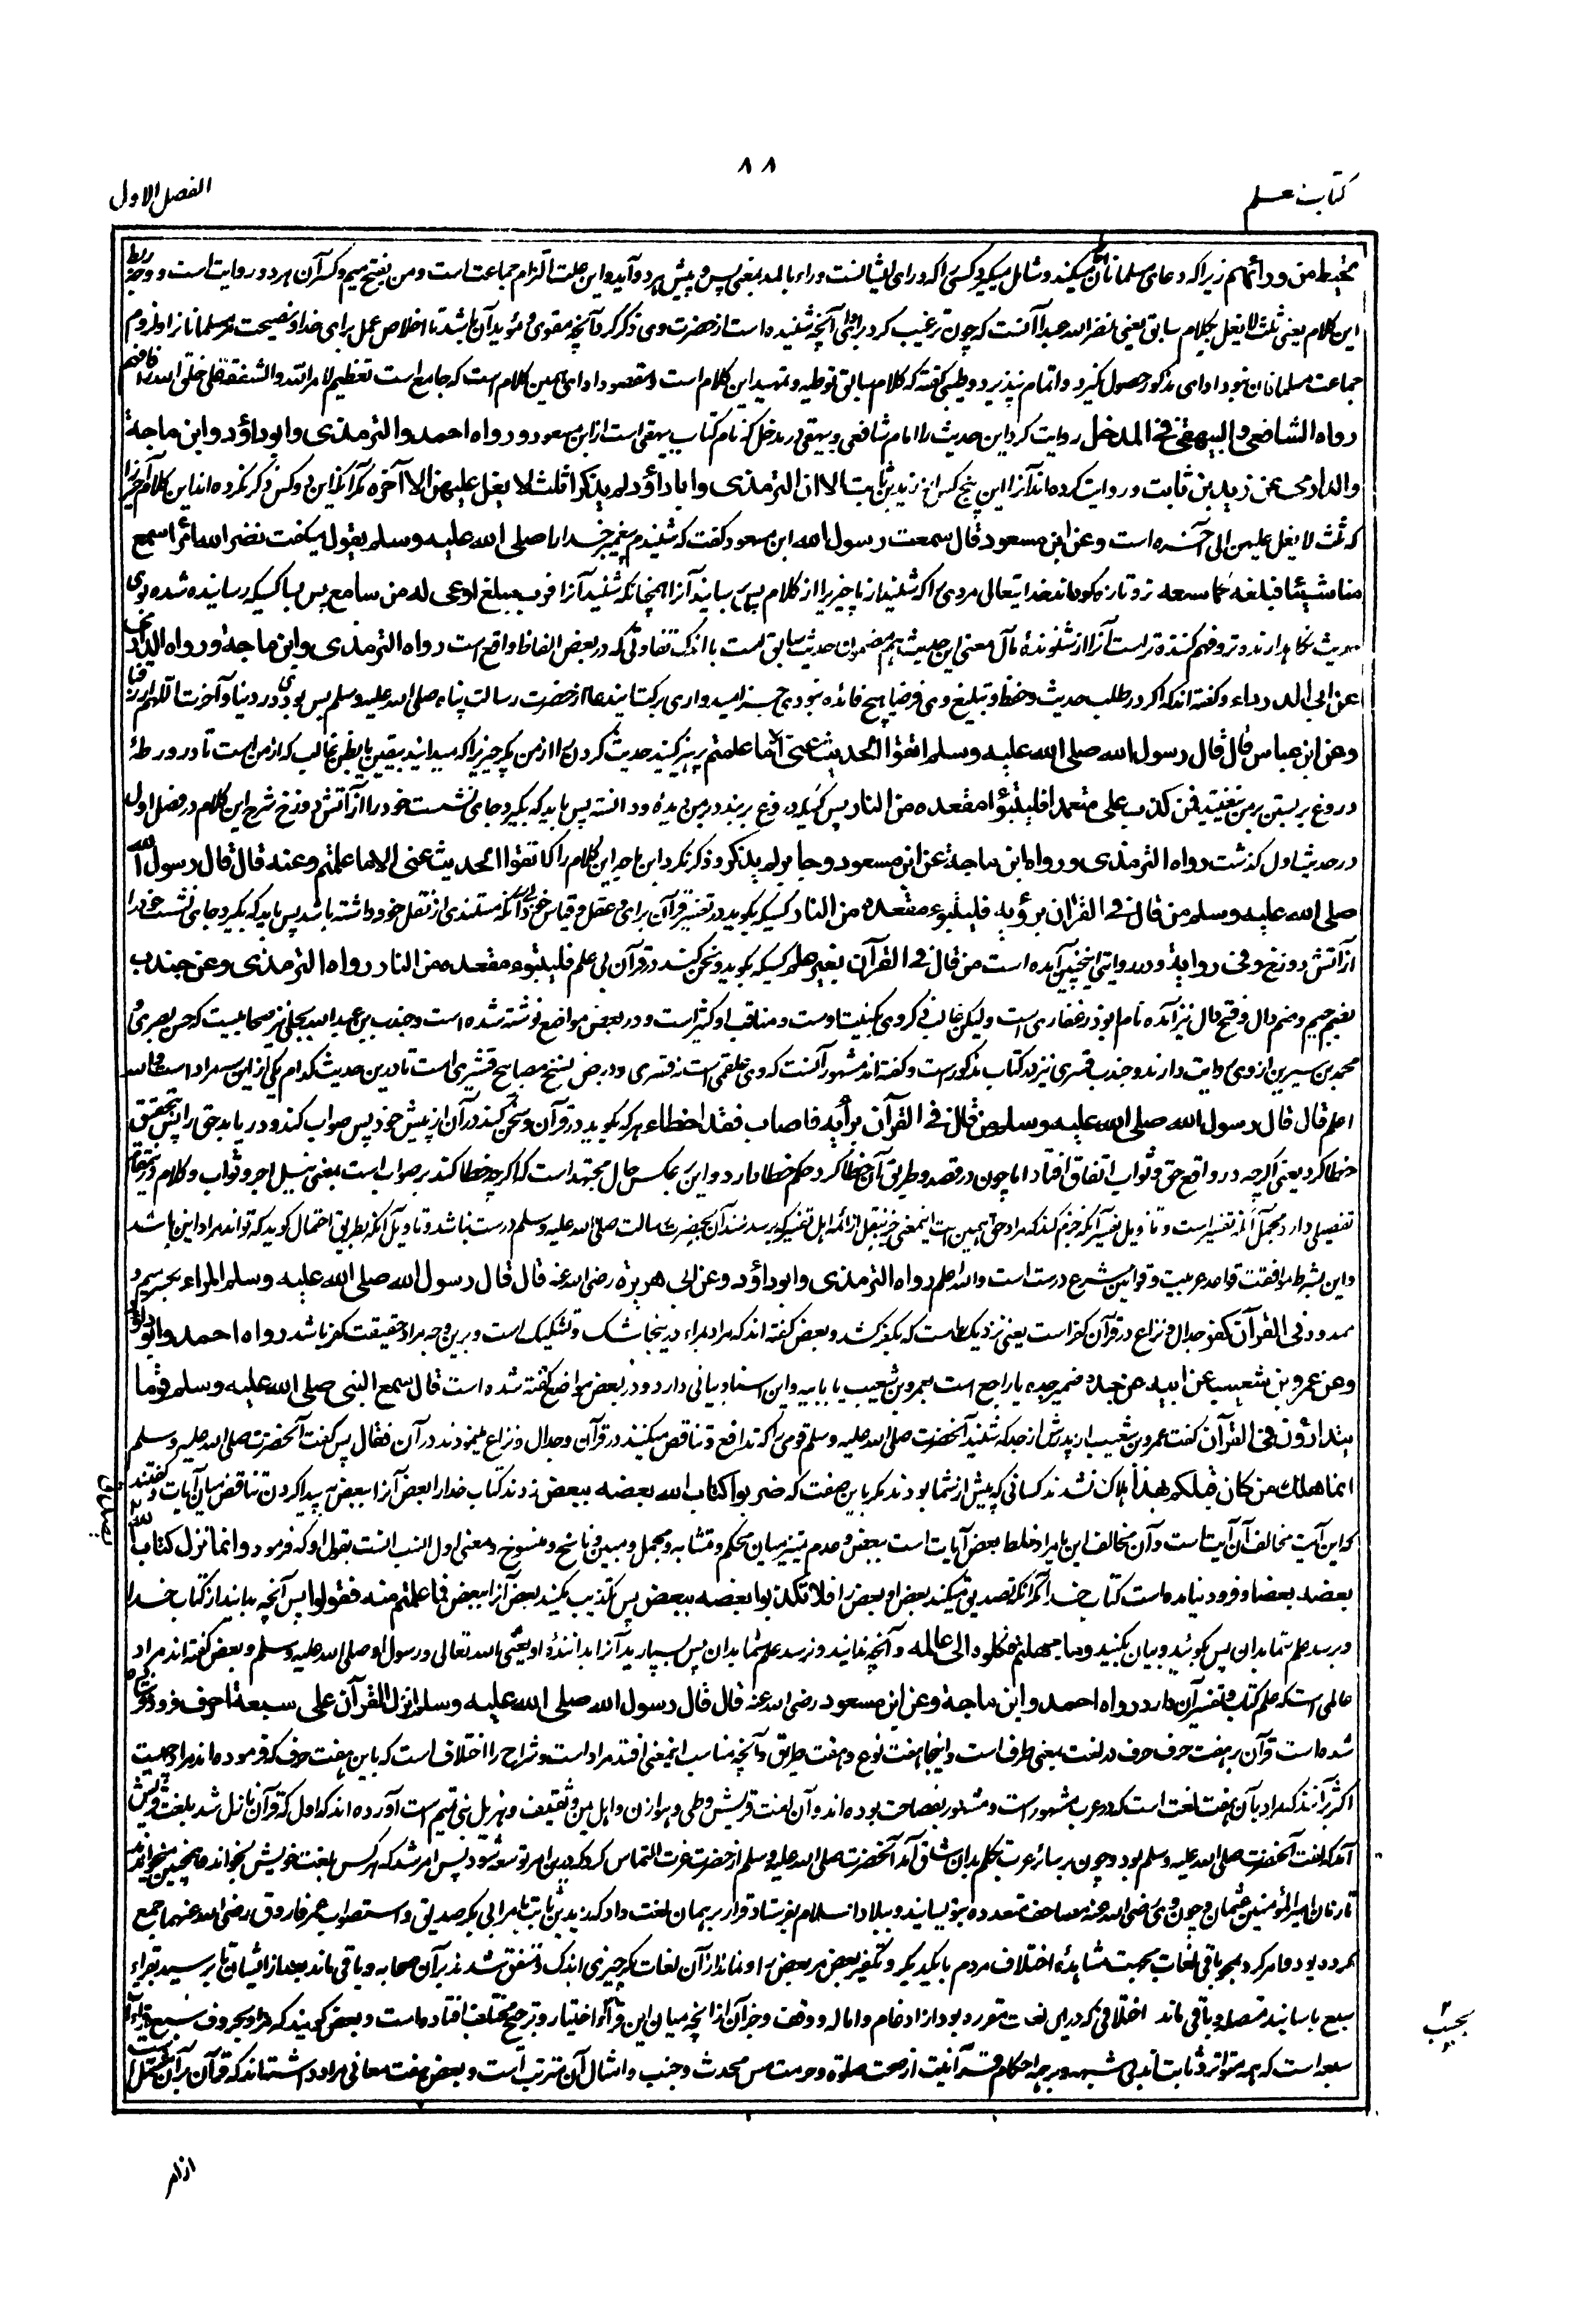 ۸۸
کتاب علم
الفصل الاول
تحیط من ورائهم زیراکه دعای مسلمانان میکند و شامل میگیرد کسی راکه ورای ایشانست وراء بالمد بمعنی پس و پیش هر دو آید و این علت التزام جماعت است و من بفتح میم و کسر آن هر دو روایت است و وجه ربط
این کلام یعنی ثلث لا یغل بکلام سابق یعنی نضر الله عبدا آنست که چون ترغیب کرد برادای آنچه شنیده است از حضرت وی ذکر کرد آنچه مقوی و مؤید آن باشد تا اخلاص عمل برای خدا و نصیحت مر مسلمانان را و لزوم
جماعت مسلمانان نبود ادای مذکور حصول نگیرد و اتمام نپذیرد و طیبی گفته که کلام سابق توطیه و تمهید این کلام است و مقصود ادای همین کلام است که جامع است تعظیم لامر الله و الشفقة علی خلق الله را فافهم
رواه الشافعی والبیهقی فی المدخل روایت کرد این حدیث را امام شافعی و بیهقی در مدخل که نام کتاب بیهقی است از ابن مسعود و رواه احمد والترمذی وابوداؤد وابن ماجة
والدارمی عن زید بن ثابت و روایت کرده اند آنرا این پنج کس از زید بن ثابت الا ان الترمذی وابا داؤد لم یذکرا ثلث لا یغل علیهن الا آخره مگر آنکه این دو کس ذکر نکرده اند این کلام آخر را
که ثلث لا یغل علیهن الی آخره است وعن ابن مسعود قال سمعت رسول الله ابن مسعود گفت که شنیدم پیغمبر خدا را صلی الله علیه وسلم یقول میگفت نضر الله امرأ سمع
منا شیئا فبلغه کما سمعه تر و تازه گرداند خدایتعالی مردی را که شنید از ما چیزیرا از کلام پس رسانید آنرا همچنانکه شنید آنرا فرب مبلغ اوعی له من سامع پس بسا کسیکه رسانیده شده بوی
حدیث نگاهدارنده تر و فهم کننده تر است آنرا از شنونده مآل معنی این حدیث هم مضمون حدیث سابق است با اندک تفاوتی که در بعض الفاظ واقع است رواه الترمذی وابن ماجة ورواه الدارمی
عن ابی الدرداء و گفته اند که اگر در طلب حدیث و حفظ و تبلیغ وی فرضا هیچ فائده نبودی جز امیدواری برکت این دعا از حضرت رسالت پناه صلی الله علیه وسلم بس بودی در دنیا و آخرت اللهم ارزقنا
وعن ابن عباس قال قال رسول الله صلی الله علیه وسلم اتقوا الحدیث عنی الا ما علمتم پرهیز کنید حدیث کردن را از من مگر چیزیرا که میدانید بیقین یا بظن غالب که از من است تا در ورطۀ
دروغ بربستن بر من نیفتید فمن کذب علی متعمدا فلیتبوأ مقعده من النار پس کسیکه دروغ بربندد بر من دیده و دانسته پس باید که بگیرد جای نشست خود را از آتش دوزخ شرح این کلام در فصل اول
در حدیث اول گذشت رواه الترمذی ورواه ابن ماجة عن ابن مسعود وجابر ولم یذکر و ذکر نکرد ابن ماجه این کلام را که اتقوا الحدیث عنی الا ما علمتم وعنه قال قال رسول الله
صلی الله علیه وسلم من قال فی القرآن برؤیه فلیتبوء مقعده من النار کسیکه بگوید در تفسیر قرآن برای و عقل و قیاس خود بی آنکه مستندی از نقل خود داشته باشد پس باید که بگیرد جای نشست خود را
از آتش دوزخ وفی روایة و در روایتی اینچنین آمده است من قال فی القرآن بغیر علم کسیکه بگوید و سخن کند در قرآن بی علم فلیتبوء مقعده من النار رواه الترمذی وعن جندب
بضم جیم و ضم دال و فتح دال نیز آمده نام ابوذر غفاری است ولیکن غالب ذکر وی بکنیت اوست و مناقب او کثیر است و در بعض مواضع نوشته شده است و جندب بن عبدالله بجلی نیز صحابیست که حسن بصری و
محمد بن سیرین از وی روایت دارند و جندب قسری نیز در کتاب مذکور است و گفته اند مشهور آنست که وی علقمی است نه قسری و در بعض نسخ مصابیح قشیری است تا درین حدیث کدام یکی از این مراد است والله
اعلم قال قال رسول الله صلی الله علیه وسلم من قال فی القرآن برأیه فاصاب فقد اخطاء هر که بگوید در قرآن و سخن کند در آن از پیش خود پس صواب کند و دریابد حق را پس بتحقیق
خطا کرد یعنی اگرچه در واقع حق و ثواب اتفاق افتاد اما چون در قصد و طریق آن خطا کرد حکم خطا دارد و این بر عکس حال مجتهد است که اگرچه خطا کند بر صواب است بمعنی نیل اجر و ثواب و کلام درین مقام
تفصیلی دارد مجمل آنکه تفسیر است و تاویل تفسیر آنکه جزم کند که مراد حق همین است اینمعنی جز بنقل از ائمه اهل تفسیر که برسد سند آن بحضرت رسالت صلی الله علیه وسلم درست نباشد و تاویل آنکه بطریق احتمال گوید که تواند مراد این باشد
و این بشرط موافقت قواعد عربیت و قوانین شرع درست است والله اعلم رواه الترمذی وابوداؤد وعن ابی هریرة رضی الله عنه قال قال رسول الله صلی الله علیه وسلم المراء بکسر میم و
ممدود فی القرآن کفر جدال و نزاع در قرآن کفر است یعنی نزدیک است که بکفر کشد و بعض گفته اند که مراد بمراء در ینجا شک و تشکیک است و برین وجه مراد حقیقت کفر باشد رواه احمد وابوداؤد
وعن عمرو بن شعیب عن ابیه عن جده ضمیر جده یا راجع است بعمرو بن شعیب یا بابیه و این اسناد بیانی دارد و در بعض مواضع گفته شده است قال سمع النبی صلی الله علیه وسلم قوما
یتدارؤن فی القرآن گفت عمرو بن شعیب از پدرش از جد که شنید آنحضرت صلی الله علیه وسلم قومی را که تدافع و تناقض میکنند در قرآن و جدال و نزاع مینمودند در آن فقال پس گفت آنحضرت صلی الله علیه وسلم
انما هلک من کان قبلکم بهذا هلاک نشدند کسانی که پیش از شما بودند مگر باین صفت که ضربوا کتاب الله بعضه ببعض زدند کتاب خدا را بعض آنرا ببعض به پیدا کردن تناقض میان آیات و گفتند
که این آیت مخالف آن آیتست و آن مخالف این یا مراد خلط بعض آیات است ببعض و عدم تمیز میان محکم و متشابه و مجمل و مبین و ناسخ و منسوخ و معنی اول انسب است بقول او که فرمود وانما نزل کتاب الله
یصدق
بعضه بعضا و فرود نیامده است کتاب خدا مگر آنکه تصدیق میکند بعض او بعض را فلا تکذبوا بعضه ببعض پس تکذیب مکنید بعض آنرا ببعض فما علمتم منه فقولوا پس آنچه بدانید از کتاب خدا
و برسد علم شما بدان پس بگوئید و بیان بکنید وما جهلتم فکلوه الی عالمه و آنچه ندانید و نرسد علم شما بدان پس بسپارید آنرا بدانندۀ او یعنی بالله تعالی و رسول او صلی الله علیه وسلم و بعض گفته اند مراد
عالمی است که علم کتاب و تفسیر آن دارد رواه احمد وابن ماجة وعن ابن مسعود رضی الله عنه قال قال رسول الله صلی الله علیه وسلم انزل القرآن علی سبعة احرف فرود فرستاده
شده است قرآن بر هفت حرف حرف در لغت بمعنی طرف است و اینجا هفت نوع و هفت طریق و آنچه مناسب اینمعنی افتد مراد است و شراح را اختلاف است که باین هفت حرف که فرموده اند مراد چیست
اکثر برآنند که مراد بآن هفت لغت است که در عرب مشهور است و مشهور بفصاحت بوده اند و آن لغت قریش و طی و هوازن و اهل یمن و ثقیف و هذیل و بنی تمیم است آورده اند که اول که قرآن نازل شد بلغت قریش
آمد که لغت آنحضرت صلی الله علیه وسلم بود و چون بر سائر عرب تکلم بدان شاق آمد آنحضرت صلی الله علیه وسلم از حضرت عزت التماس کرد که درین امر توسعه شود پس امر شد که هر کس بلغت خویش بخواند و همچنین میخواندند
تا زمان امیرالمؤمنین عثمان و چون وی رضی الله عنه مصاحف متعدده بنویسانید و ببلاد اسلام بفرستاد قرار بر همان لغت داد که زید بن ثابت بامر ابی بکر صدیق و استصواب عمر فاروق رضی الله عنهما جمع
کرده بود و امر کرد بمحو باقی لغات بجهت مشاهدۀ اختلاف مردم با یکدیگر و تکفیر بعض مر بعض را و نماند از آن لغات مگر چیزی اندک و متفق شدند بر آن صحابه و باقی ماند بعد از ایشان تا برسید بقراء
سبع باسانید متصله و باقی ماند اختلافی که در این لغت مقرر بود از ادغام و اماله و وقف و جز آن از آنچه میان این قراء اختیار و ترجیح مختلف افتاده است و بعض گویند که مراد بحروف سبع قراآت
سبعه است که همه متواتر و ثابت اند بی شبهه و بر همه احکام قرآنیت از صحت صلوة و حرمت مس محدث و جنب و امثال آن مترتب است و بعض هفت معانی مراد داشته اند که قرآن بر آن مشتمل است
از امر